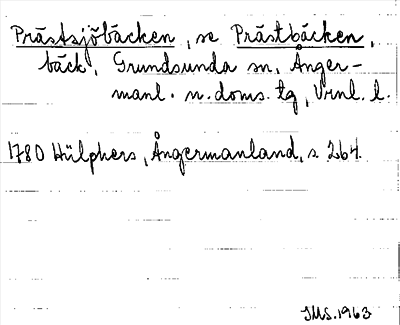 Prästsjöbäcken, se Prästbäcken,
bäck, Grundsunda sn, Ånger-
manl. n. doms. tg, Vrnl. l.
1780 Hülphers, Ångermanland, s. 264.
IMS. 1963